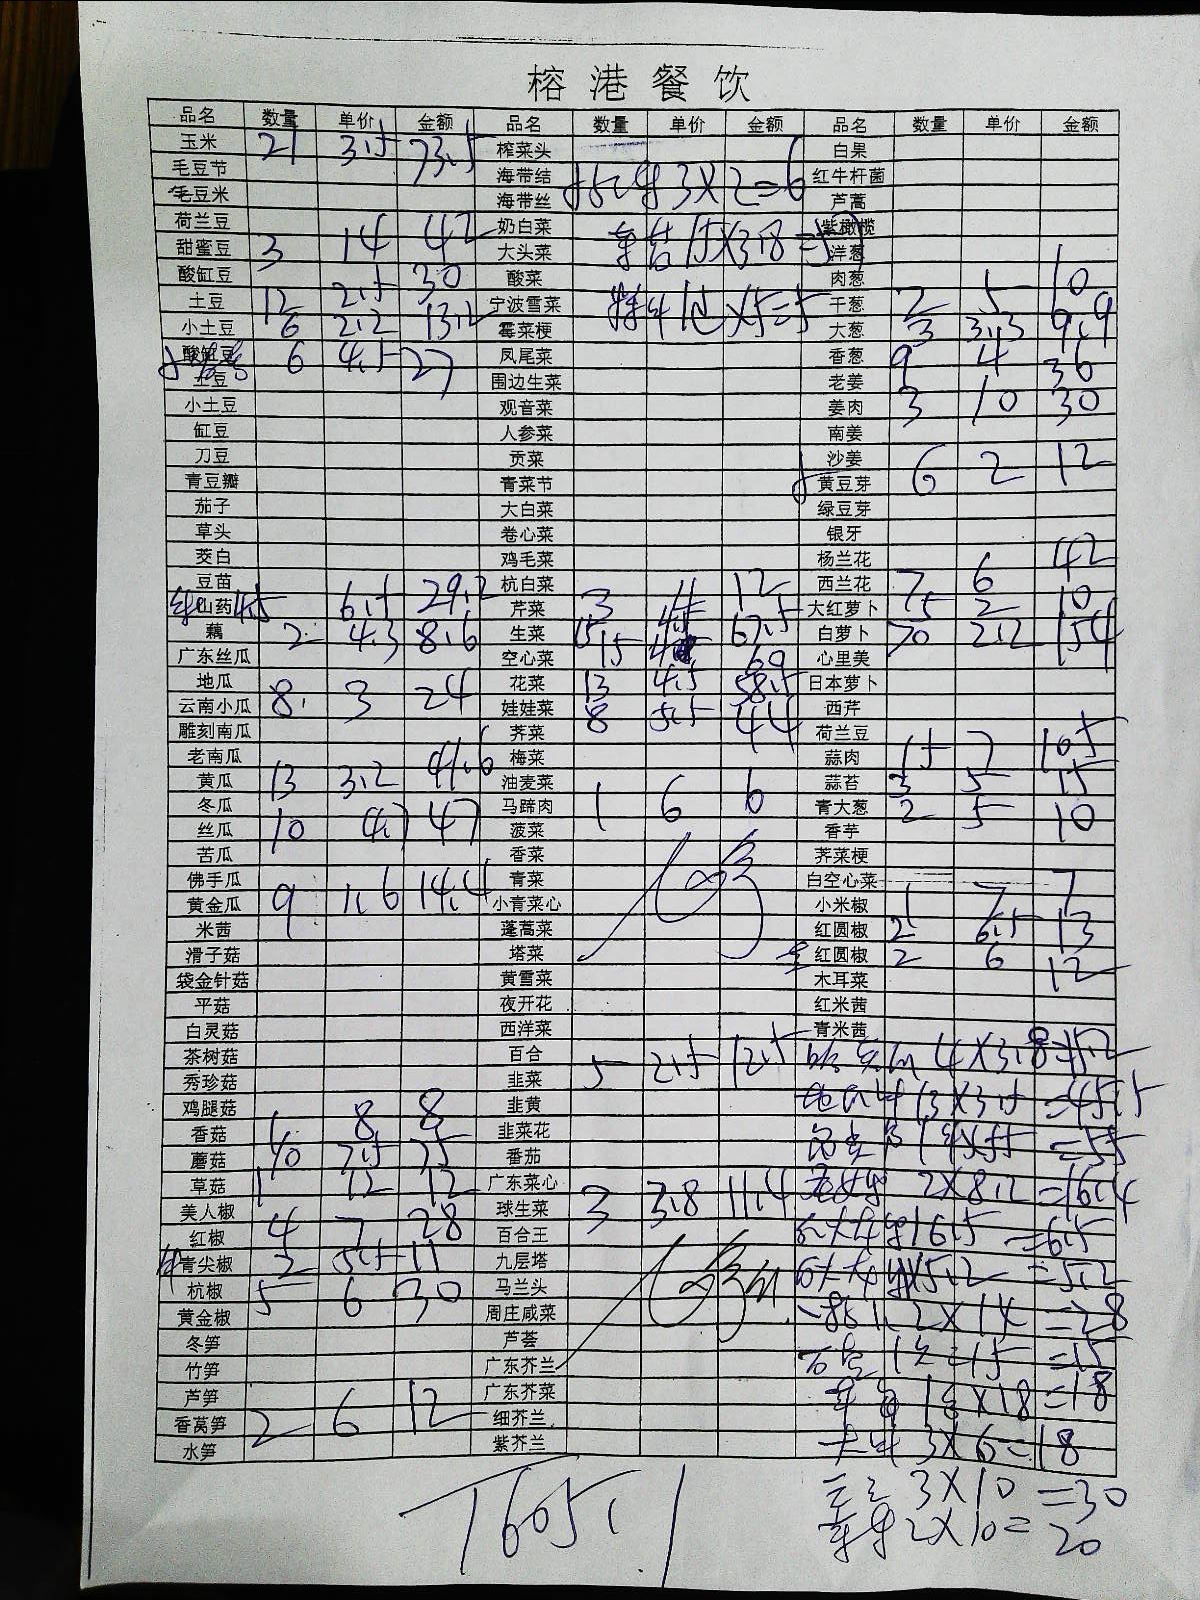 榕港餐饮
品名 数量 单价 金额 品名 数量 单价 金额 品名 数量 单价 金额
玉米 21 3.5 73.5 榨菜头 白果
毛豆节 海带结 3X2=6 红牛杆菌
毛豆米 海带丝 芦蒿
荷兰豆 奶白菜 紫橄榄
甜蜜豆 3 14 42 大头菜 15X3.8=57 洋葱
酸缸豆 酸菜 肉葱
土豆 12 2.5 30 宁波雪菜 干葱 2 5 10
小土豆 6 2.2 13.2 霉菜梗 X5=5 大葱 3 3.3 9.9
酸缸豆 6 4.5 27 凤尾菜 香葱 9 4 36
土豆 围边生菜 老姜
小土豆 观音菜 姜肉 3 10 30
缸豆 人参菜 南姜
刀豆 贡菜 沙姜
青豆瓣 青菜节 黄豆芽 6 2 12
茄子 大白菜 绿豆芽
草头 卷心菜 银牙
茭白 鸡毛菜 杨兰花
豆苗 杭白菜 3 4 12 西兰花 7 6 42
山药 4.5 6.5 29.2 芹菜 15 4.5 67.5 大红萝卜 5 2 10
藕 2 4.3 8.6 生菜 15 60 白萝卜 70 2.2 154
广东丝瓜 空心菜 心里美
地瓜 花菜 13 4.5 58.5 日本萝卜
云南小瓜 8 3 24 娃娃菜 8 5.5 44 西芹
雕刻南瓜 荠菜 荷兰豆
老南瓜 梅菜 蒜肉 15 7 105
黄瓜 13 3.2 41.6 油麦菜 蒜苔 3 5 15
冬瓜 马蹄肉 1 6 6 青大葱 2 5 10
丝瓜 10 4.7 47 菠菜 香芋
苦瓜 香菜 荠菜梗
佛手瓜 青菜 白空心菜
黄金瓜 9 1.6 14.4 小青菜心 小米椒 1 7 7
米茜 蓬蒿菜 红圆椒 2 6.5 13
滑子菇 塔菜 红圆椒 2 6 12
袋金针菇 黄雪菜 木耳菜
平菇 夜开花 红米茜
白灵菇 西洋菜 青米茜
茶树菇 百合 4X3.8=15.2
秀珍菇 韭菜 5 2.5 12.5 13X3.5=45.5
鸡腿菇 韭黄 =55
香菇 1 8 8 韭菜花 2X8.2=16.4
蘑菇 10 7.5 75 番茄 =6.5
草菇 1 12 12 广东菜心 =5.2
美人椒 球生菜 3 3.8 11.4 2X14=28
红椒 4 7 28 百合王 =15
青尖椒 2 5.5 11 九层塔 X18=18
杭椒 5 6 30 马兰头 3X6=18
黄金椒 周庄咸菜
冬笋 芦荟
竹笋 广东芥兰
芦笋 广东芥菜
香莴笋 2 6 12 细芥兰
水笋 紫芥兰
3X10=30
2X10=20
1605.1